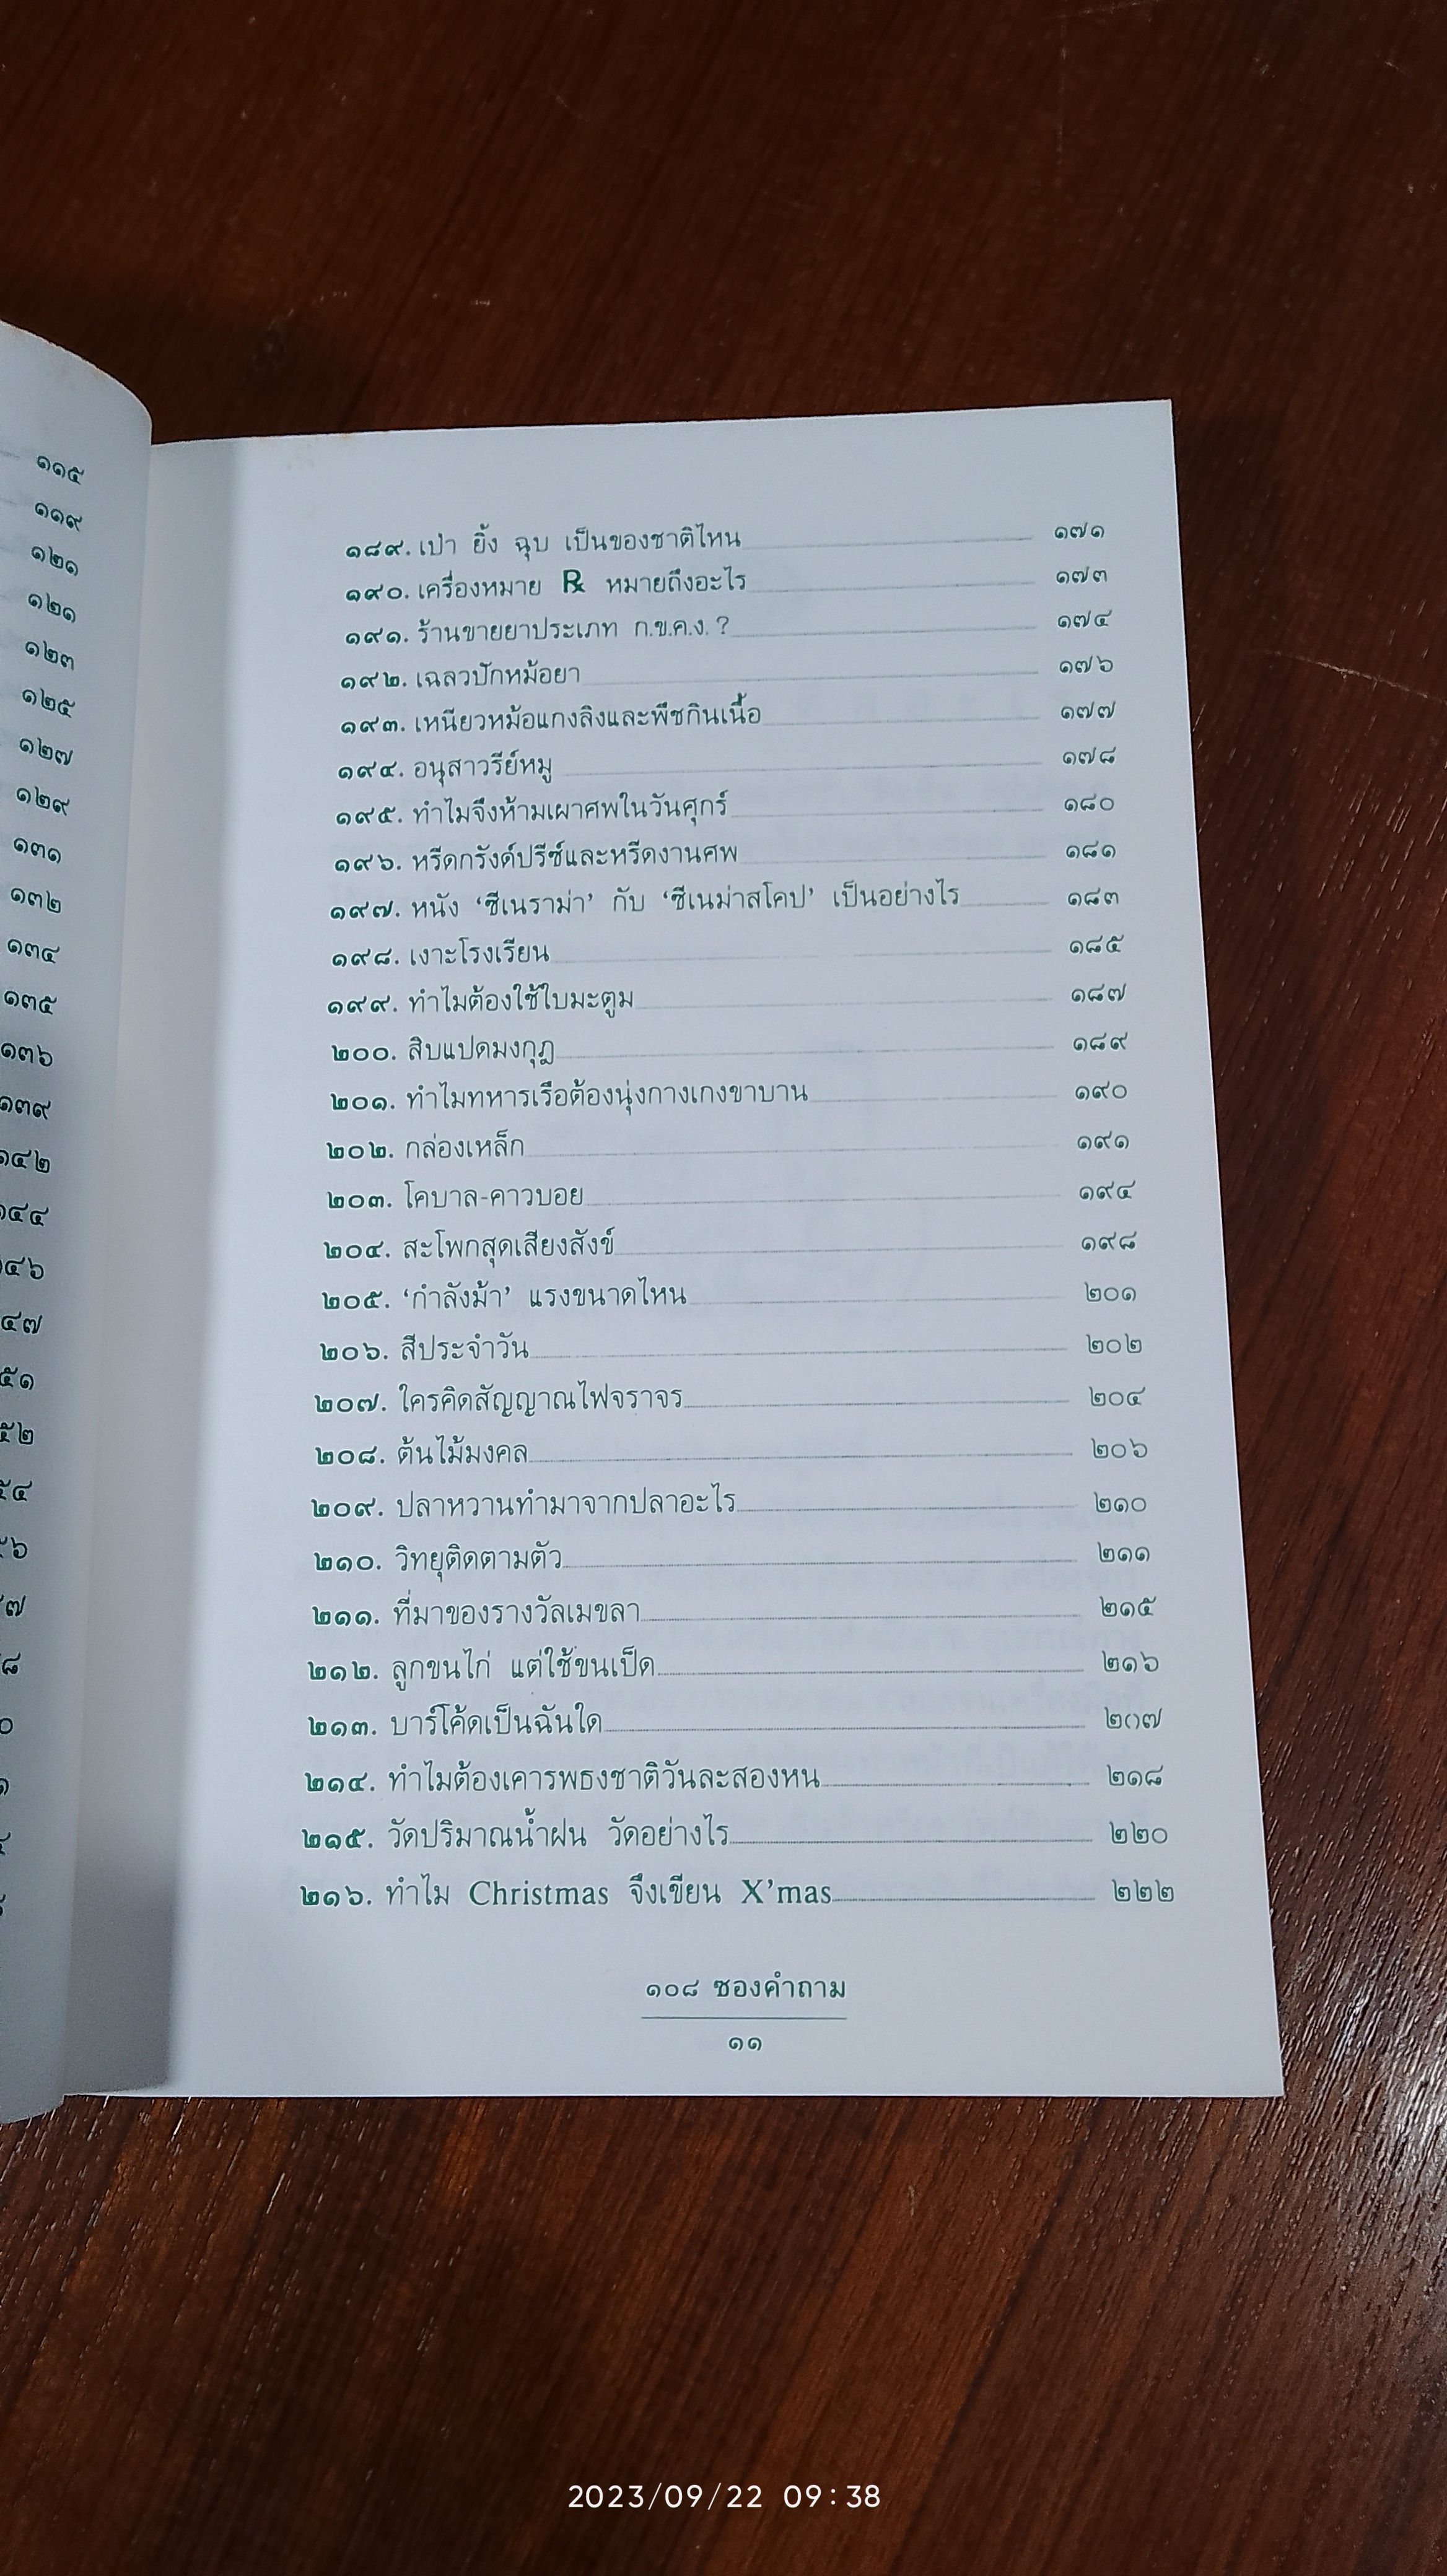 ๑๑๕
๑๑๙
๑๒๑
๑๒๑
๑๒๓
๑๒๕
๑๒๗
๑๒๙
๑๓๑
๑๓๒
๑๓๔
๑๓๕
๑๓๖
๑๓๙
๑๔๒
๑๔๔
๑๘๙. เป่า ยิ้ง ฉุบ เป็นของชาติไหน ๑๗๑
๑๙๐. เครื่องหมาย ℞ หมายถึงอะไร ๑๗๓
๑๙๑. ร้านขายยาประเภท ก.ข.ค.ง. ? ๑๗๔
๑๙๒. เฉลวปักหม้อยา ๑๗๖
๑๙๓. เหนียวหม้อแกงลิงและพืชกินเนื้อ ๑๗๗
๑๙๔. อนุสาวรีย์หมู ๑๗๘
๑๙๕. ทำไมจึงห้ามเผาศพในวันศุกร์ ๑๘๐
๑๙๖. หรีดกรังด์ปรีซ์และหรีดงานศพ ๑๘๑
๑๙๗. หนัง ‘ซีเนราม่า’ กับ ‘ซีเนม่าสโคป’ เป็นอย่างไร ๑๘๓
๑๙๘. เงาะโรงเรียน ๑๘๕
๑๙๙. ทำไมต้องใช้ใบมะตูม ๑๘๗
๒๐๐. สิบแปดมงกุฎ ๑๘๙
๒๐๑. ทำไมทหารเรือต้องนุ่งกางเกงขาบาน ๑๙๐
๒๐๒. กล่องเหล็ก ๑๙๑
๒๐๓. โคบาล-คาวบอย ๑๙๔
๒๐๔. สะโพกสุดเสียงสังข์ ๑๙๘
๒๐๕. ‘กำลังม้า’ แรงขนาดไหน ๒๐๑
๒๐๖. สีประจำวัน ๒๐๒
๒๐๗. ใครคิดสัญญาณไฟจราจร ๒๐๔
๒๐๘. ต้นไม้มงคล ๒๐๖
๒๐๙. ปลาหวานทำมาจากปลาอะไร ๒๑๐
๒๑๐. วิทยุติดตามตัว ๒๑๑
๒๑๑. ที่มาของรางวัลเมขลา ๒๑๕
๒๑๒. ลูกขนไก่ แต่ใช้ขนเป็ด ๒๑๖
๒๑๓. บาร์โค้ดเป็นฉันใด ๒๑๗
๒๑๔. ทำไมต้องเคารพธงชาติวันละสองหน ๒๑๘
๒๑๕. วัดปริมาณน้ำฝน วัดอย่างไร ๒๒๐
๒๑๖. ทำไม Christmas จึงเขียน X’mas ๒๒๒
๑๐๘ ซองคำถาม
๑๑
2023/09/22 09:38